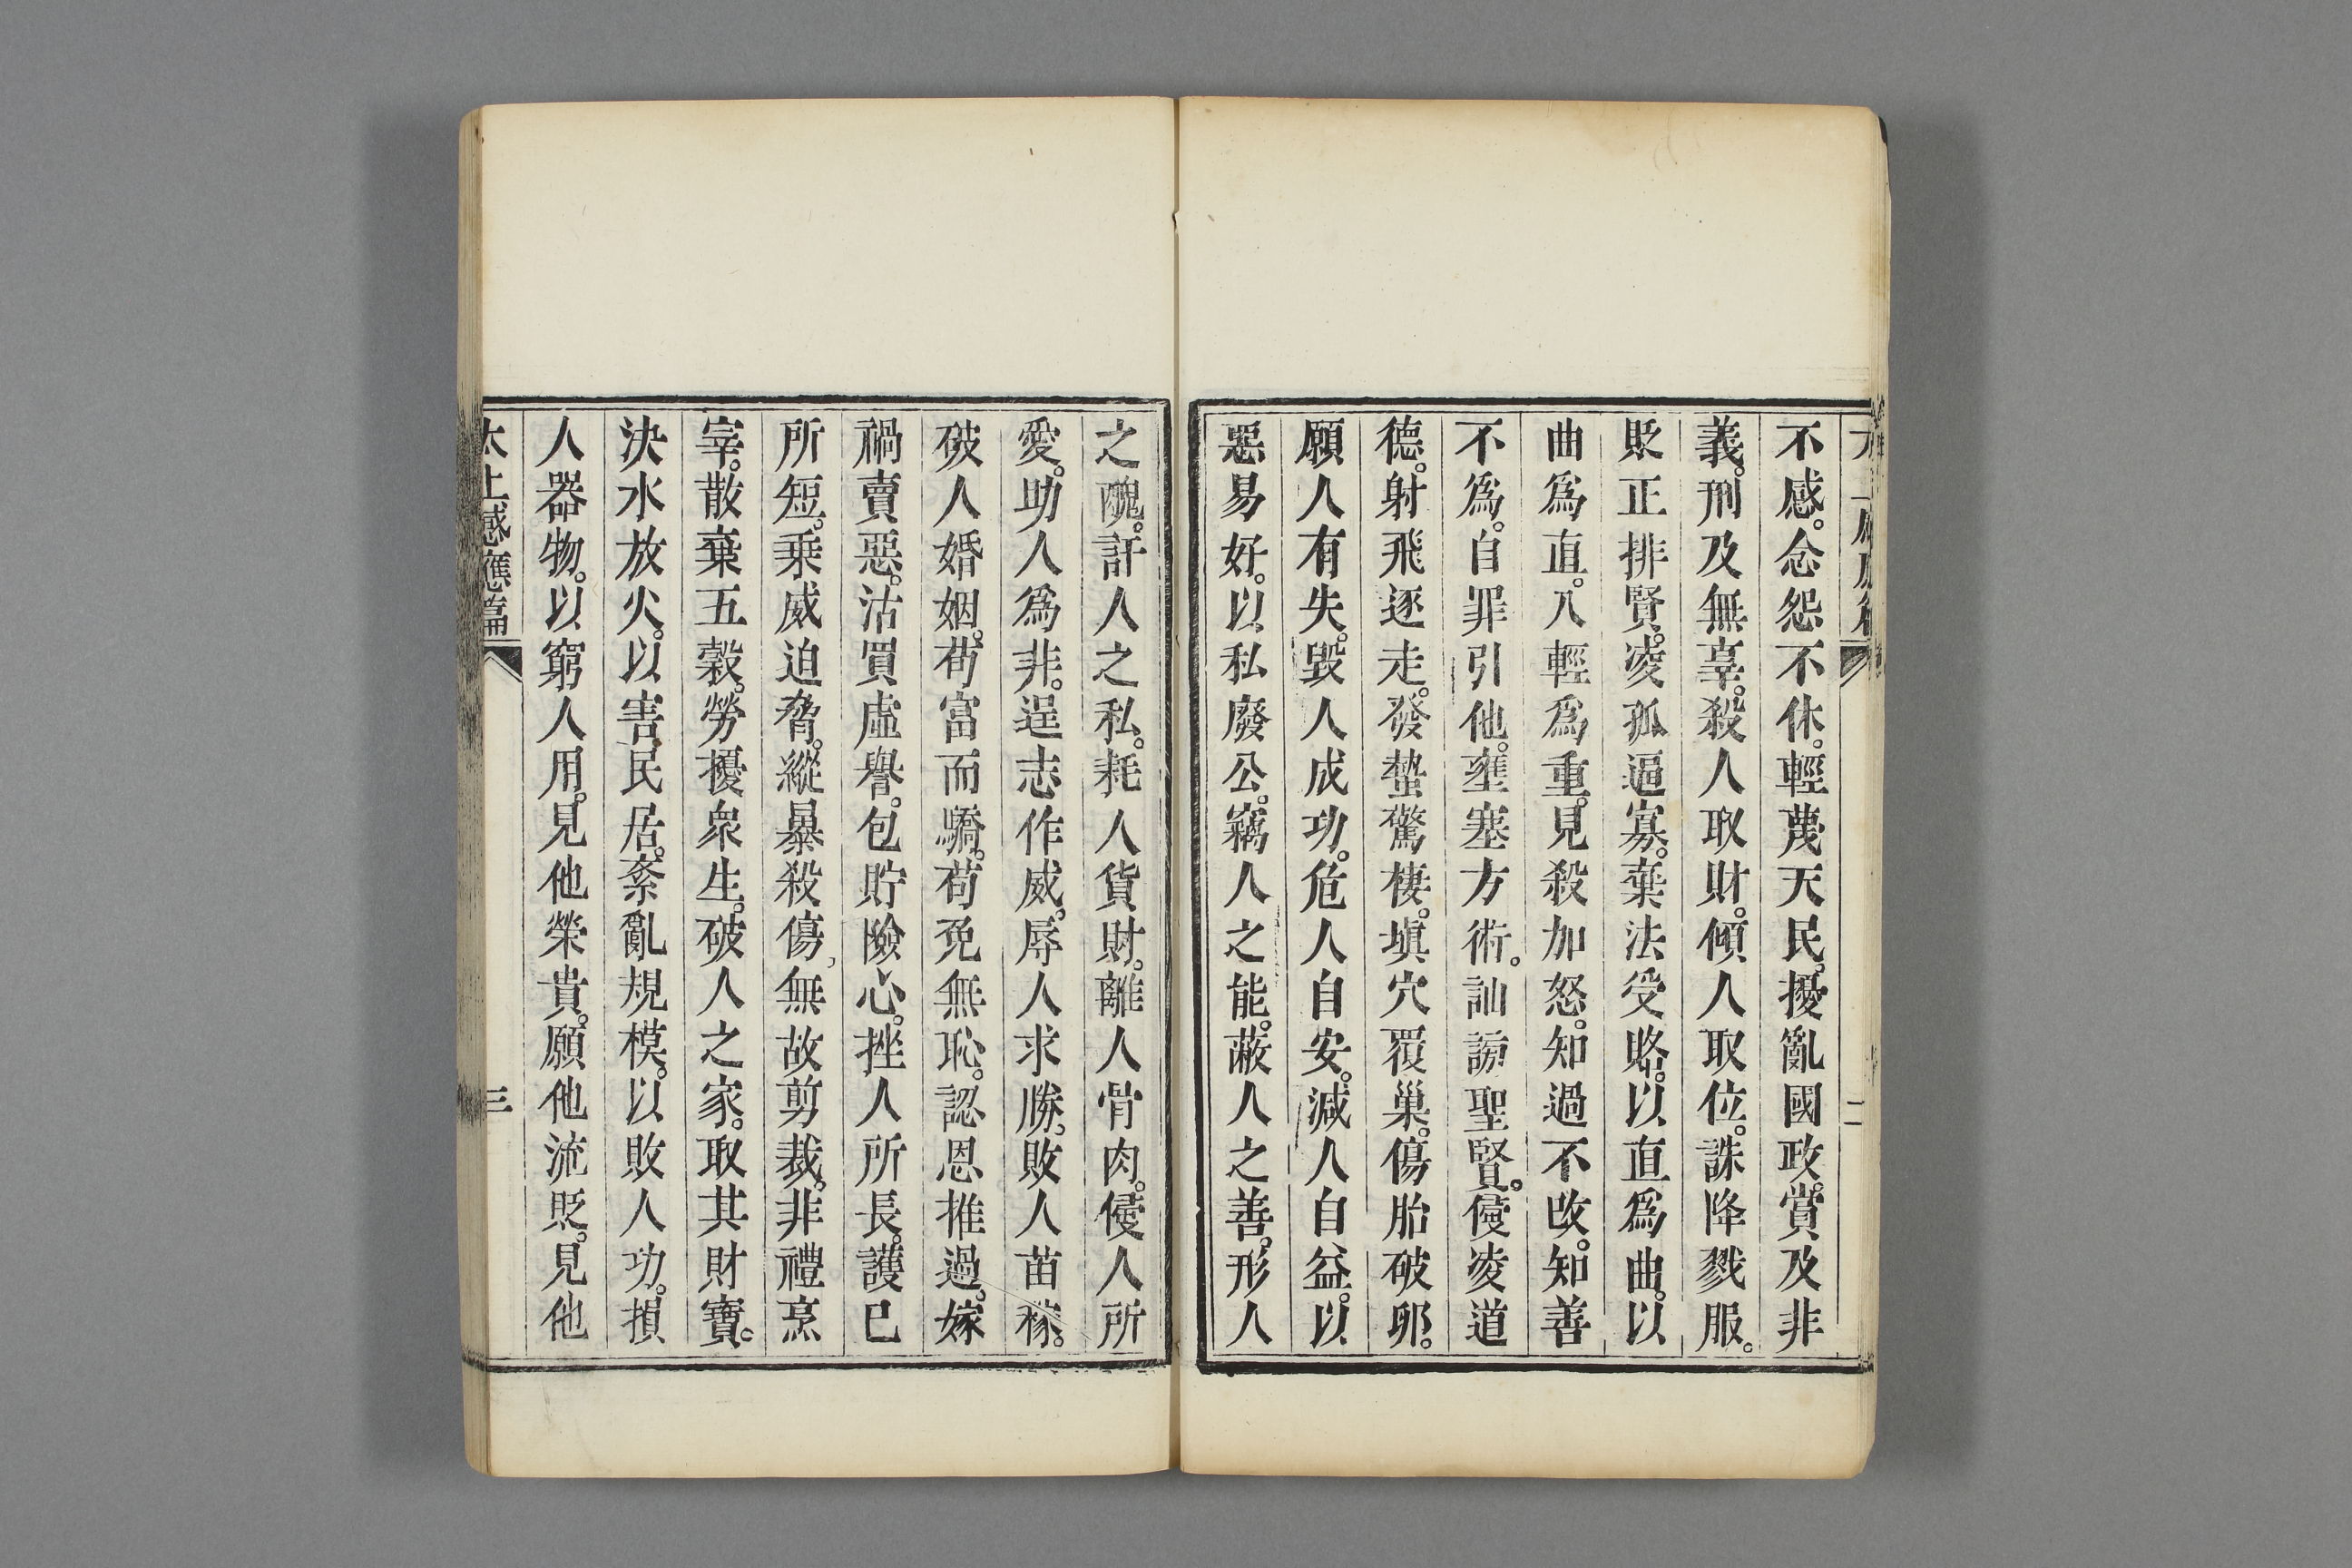 不感。念怨不休。輕蔑天民。擾亂國政。賞及非
義。刑及無辜。殺人取財。傾人取位。誅降戮服。
貶正排賢。凌孤逼寡。棄法受賂。以直爲曲。以
曲爲直。入輕爲重。見殺加怒。知過不改。知善
不爲。自罪引他。壅塞方術。訕謗聖賢。侵凌道
德。射飛逐走。發蟄驚棲。塡穴覆巢。傷胎破卵。
願人有失。毀人成功。危人自安。減人自益。以
惡易好。以私廢公。竊人之能。蔽人之善。形人
之醜。訐人之私。耗人貨財。離人骨肉。侵人所
愛。助人爲非。逞志作威。辱人求勝。敗人苗稼。
破人婚姻。苟富而驕。苟免無恥。認恩推過。嫁
禍賣惡。沽買虛譽。包貯險心。挫人所長。護已
所短。乘威迫脅。縱暴殺傷。無故剪裁。非禮烹
宰。散棄五穀。勞擾衆生。破人之家。取其財寶。
決水放火。以害民居。紊亂規模。以敗人功。損
人器物。以窮人用。見他榮貴。願他流貶。見他
太上感應篇
三